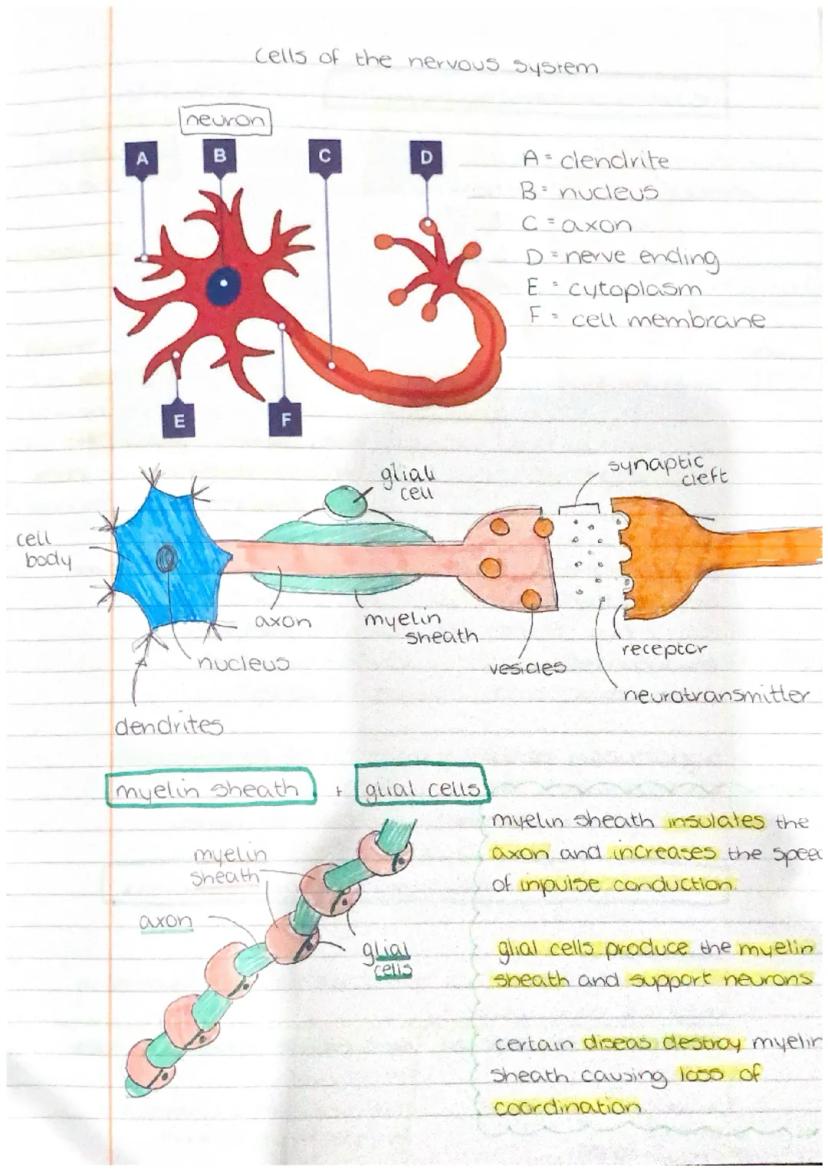 cells of the nervous system
neuron
A
B
C
D
A = dendrite
B = nucleus
C = axon
D = nerve ending
E = cytoplasm
F = cell membrane
E
F
synaptic
cleft
glial
cell
cell
body
axon
myelin
sheath
nucleus
vesicles
receptor
neurotransmitter
dendrites
myelin sheath + glial cells
myelin sheath insulates the
axon and increases the spee
of inpulse conduction.
myelin
sheath
axon
glial
cells
glial cells produce the myelin
sheath and support neurons
certain diseas destroy myelin
sheath causing loss of
coordination